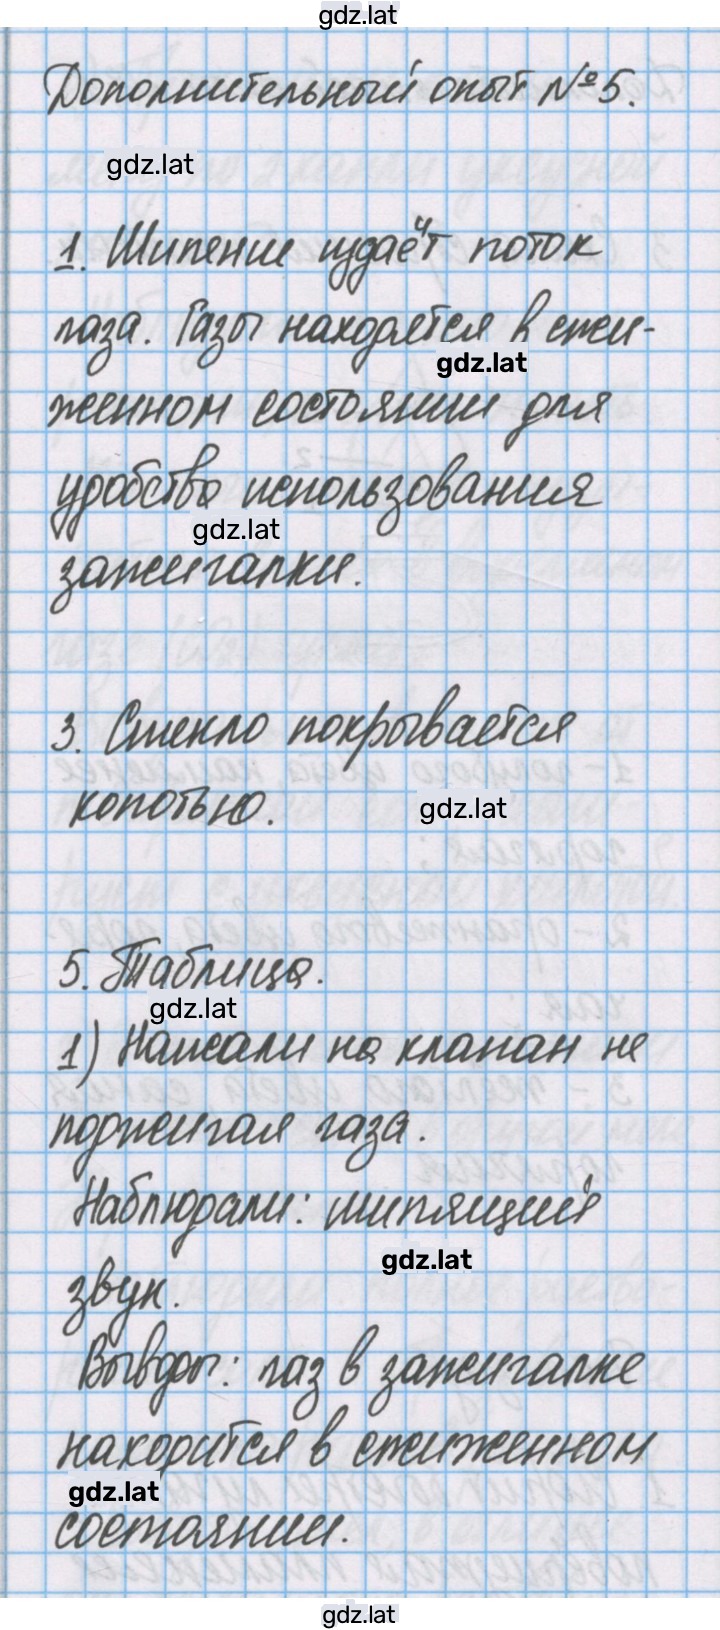 gdz.lat
Дополнительный опыт №5.
gdz.lat
1. Шипение издаёт поток
газа. Газы находятся в сжи-
gdz.lat
женном состоянии для
удобства использования
gdz.lat
зажигалки.
3. Стекло покрывается
копотью.
gdz.lat
5. Таблица.
gdz.lat
1) Нажали на клапан не
поджигая газа.
Наблюдали: шипящий
gdz.lat
звук.
Выводы: газ в зажигалке
находится в сжиженном
gdz.lat
состоянии.
gdz.lat